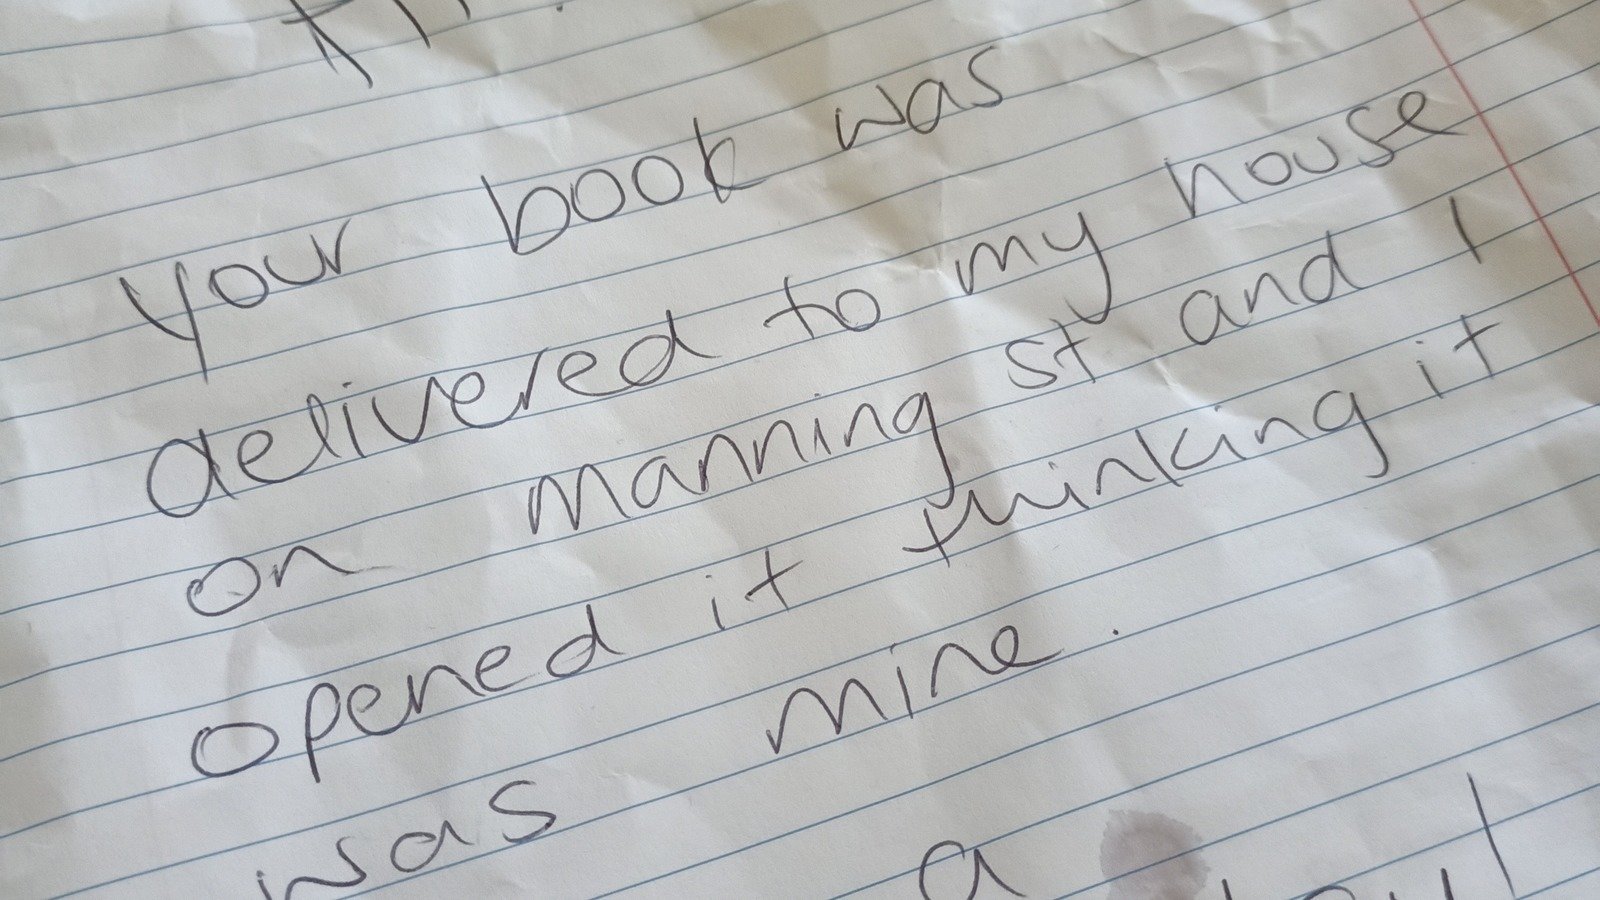 your book was
delivered to my house
on manning st and I
opened it thinking it
was mine.
a